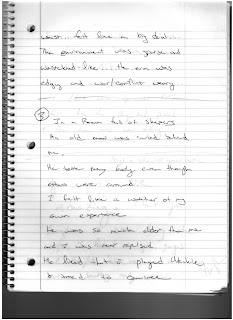 ... felt like a big deal...
The environment was sparse and
wasteland-like... the era was
edgy and war/conflict weary
③
In a Room full of sleepers
An old man was curled behind
me.
He bare many body even though
others were around.
I felt like a watcher of my
own experience
He was so much older than me
and I was repulsed
He liked that I played Ukulele
& tried to